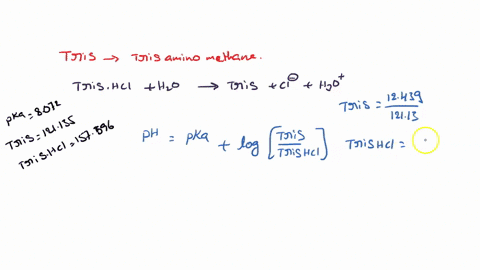 Tris → Tris amino methane.
Tris.HCl + H2O → Tris + Cl⊖ + H3O+
pKa = 8072
Tris = 121.135
TrisHCl = 157.596
Tris = 12.439/121.13
pH = pKa + log [Tris/TrisHCl]
TrisHCl =